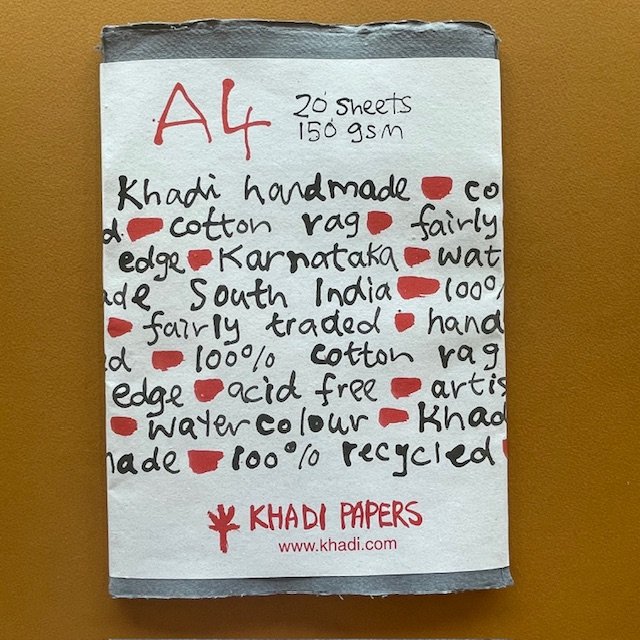 A4
20 sheets
150 gsm
Khadi handmade co
d cotton rag fairly
edge Karnataka wat
ade South India 100%
fairly traded hand
d 100% cotton rag
edge acid free artis
watercolour Khad
ade 100% recycled
KHADI PAPERS
www.khadi.com